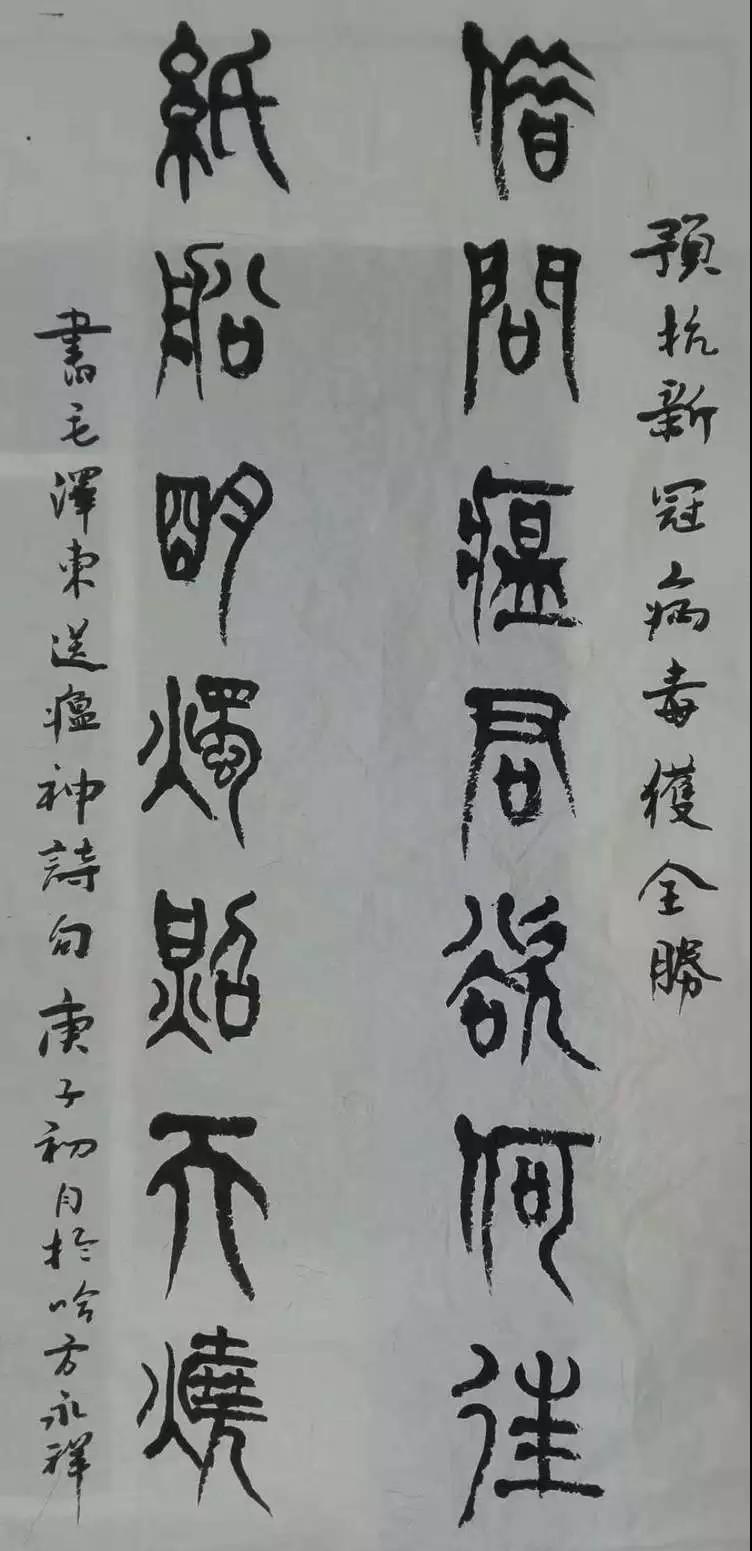 預抗新冠病毒獲全勝
借問瘟君欲何往
紙船明燭照天燒
書毛澤東送瘟神詩句 庚子初月於哈方永祥